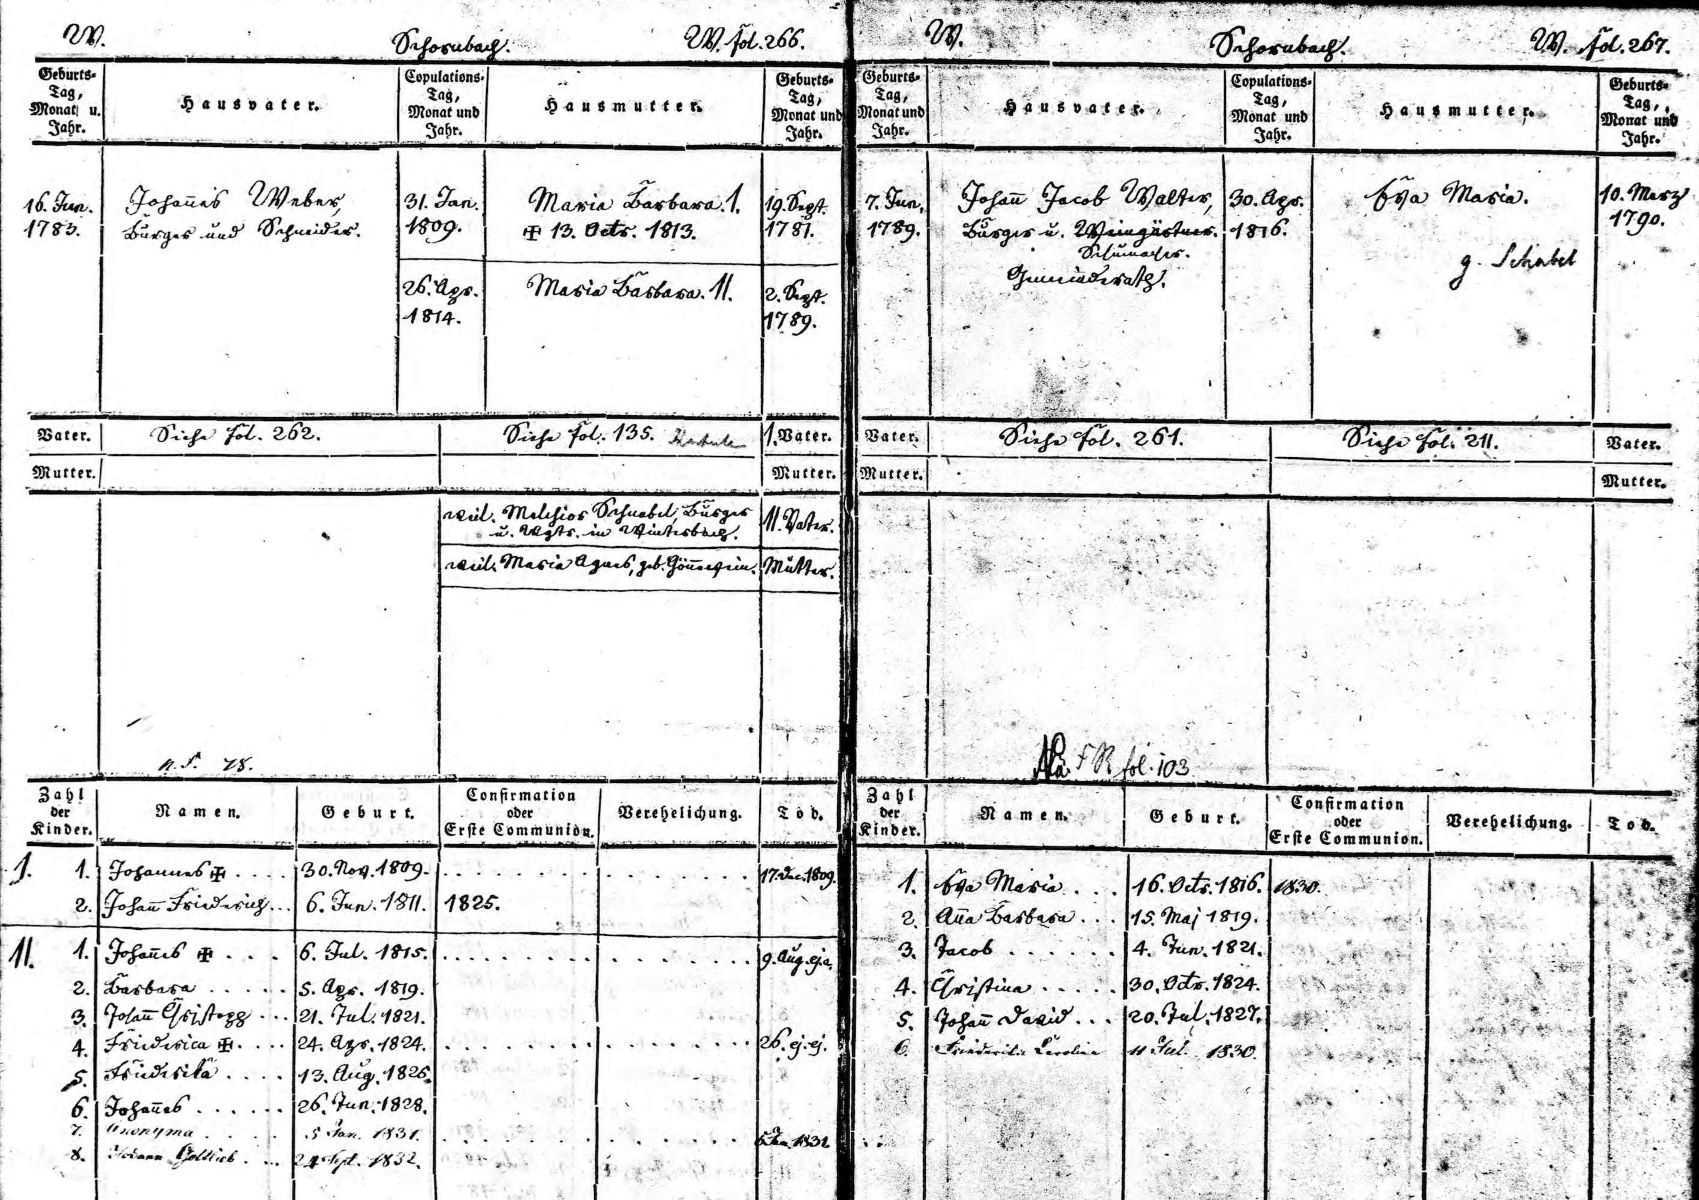 W. Schornbach. W. fol. 266.
Geburts-Tag, Monat u. Jahr. Hausvater. Copulations-Tag, Monat und Jahr. Hausmutter. Geburts-Tag, Monat und Jahr.
16. Jun. 1783. Johañes Weber, 31. Jan. 1809. Maria Barbara. I. 19. Sept. 1781.
Bürger und Schneider. ✠ 13. Octr. 1813.
26. Apr. 1814. Maria Barbara. II. 2. Sept. 1789.
Vater. Siehe fol. 262. Siehe fol. 135. I. Vater.
Mutter. Mutter.
weil. Melchior Schnabel, Bürger
u. Wgtr. in Winterbach. II. Vater.
weil. Maria Agnes, geb. Mutter.
n. F. 78.
Zahl der Kinder. Namen. Geburt. Confirmation oder Erste Communion. Verehelichung. Tod.
I. 1. Johannes ✠ .... 30. Nov. 1809. 17. Dec. 1809.
2. Johañ Friederich... 6. Jun. 1811. 1825.
II. 1. Johañes ✠ .... 6. Jul. 1815. 9. Aug. ej. a.
2. Barbara ..... 5. Apr. 1819.
3. Johañ Christoph ... 21. Jul. 1821.
4. Friederica ✠ .... 24. Apr. 1824. 26. ej. ej.
5. Friderika .... 13. Aug. 1826.
6. Johañes ...... 26. Jun. 1828.
7. Anonyma ..... 5 Jan. 1831. 5 Jan 1832
8. Johann Gottlieb .... 24 Sept. 1832.
W. Schornbach. W. fol. 267.
Geburts-Tag, Monat und Jahr. Hausvater. Copulations-Tag, Monat und Jahr. Hausmutter. Geburts-Tag, Monat und Jahr.
7. Jun. 1789. Johañ Jacob Walter, 30. Apr. 1816. Eva Maria. 10. Merz 1790.
Bürger u. Weingärtner.
Schumacher. g. Schnabel
Gemeinderath.
Vater. Siehe fol. 261. Siehe fol. 211. Vater.
Mutter. Mutter.
F R fol. 103
Zahl der Kinder. Namen. Geburt. Confirmation oder Erste Communion. Verehelichung. Tod.
1. Eva Maria .... 16. Octr. 1816. 1830.
2. Aña Barbara ... 15. Maj 1819.
3. Jacob ...... 4. Jun. 1821.
4. Christina ..... 30. Octr. 1824.
5. Johañ David ... 20. Jul. 1827.
6. Friederike Karoline 11 Jul. 1830.